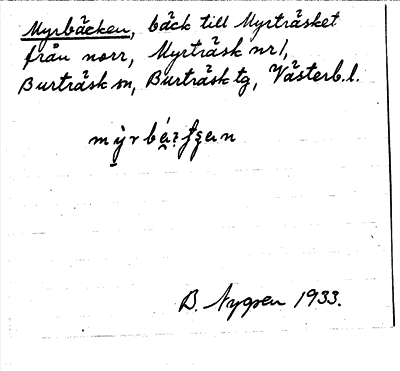 Myrbäcken, bäck till Myrträsket
från norr, Myrträsk nr 1,
Burträsk sn, Burträsk tg, Västerb. l.
B. Nygren 1933.